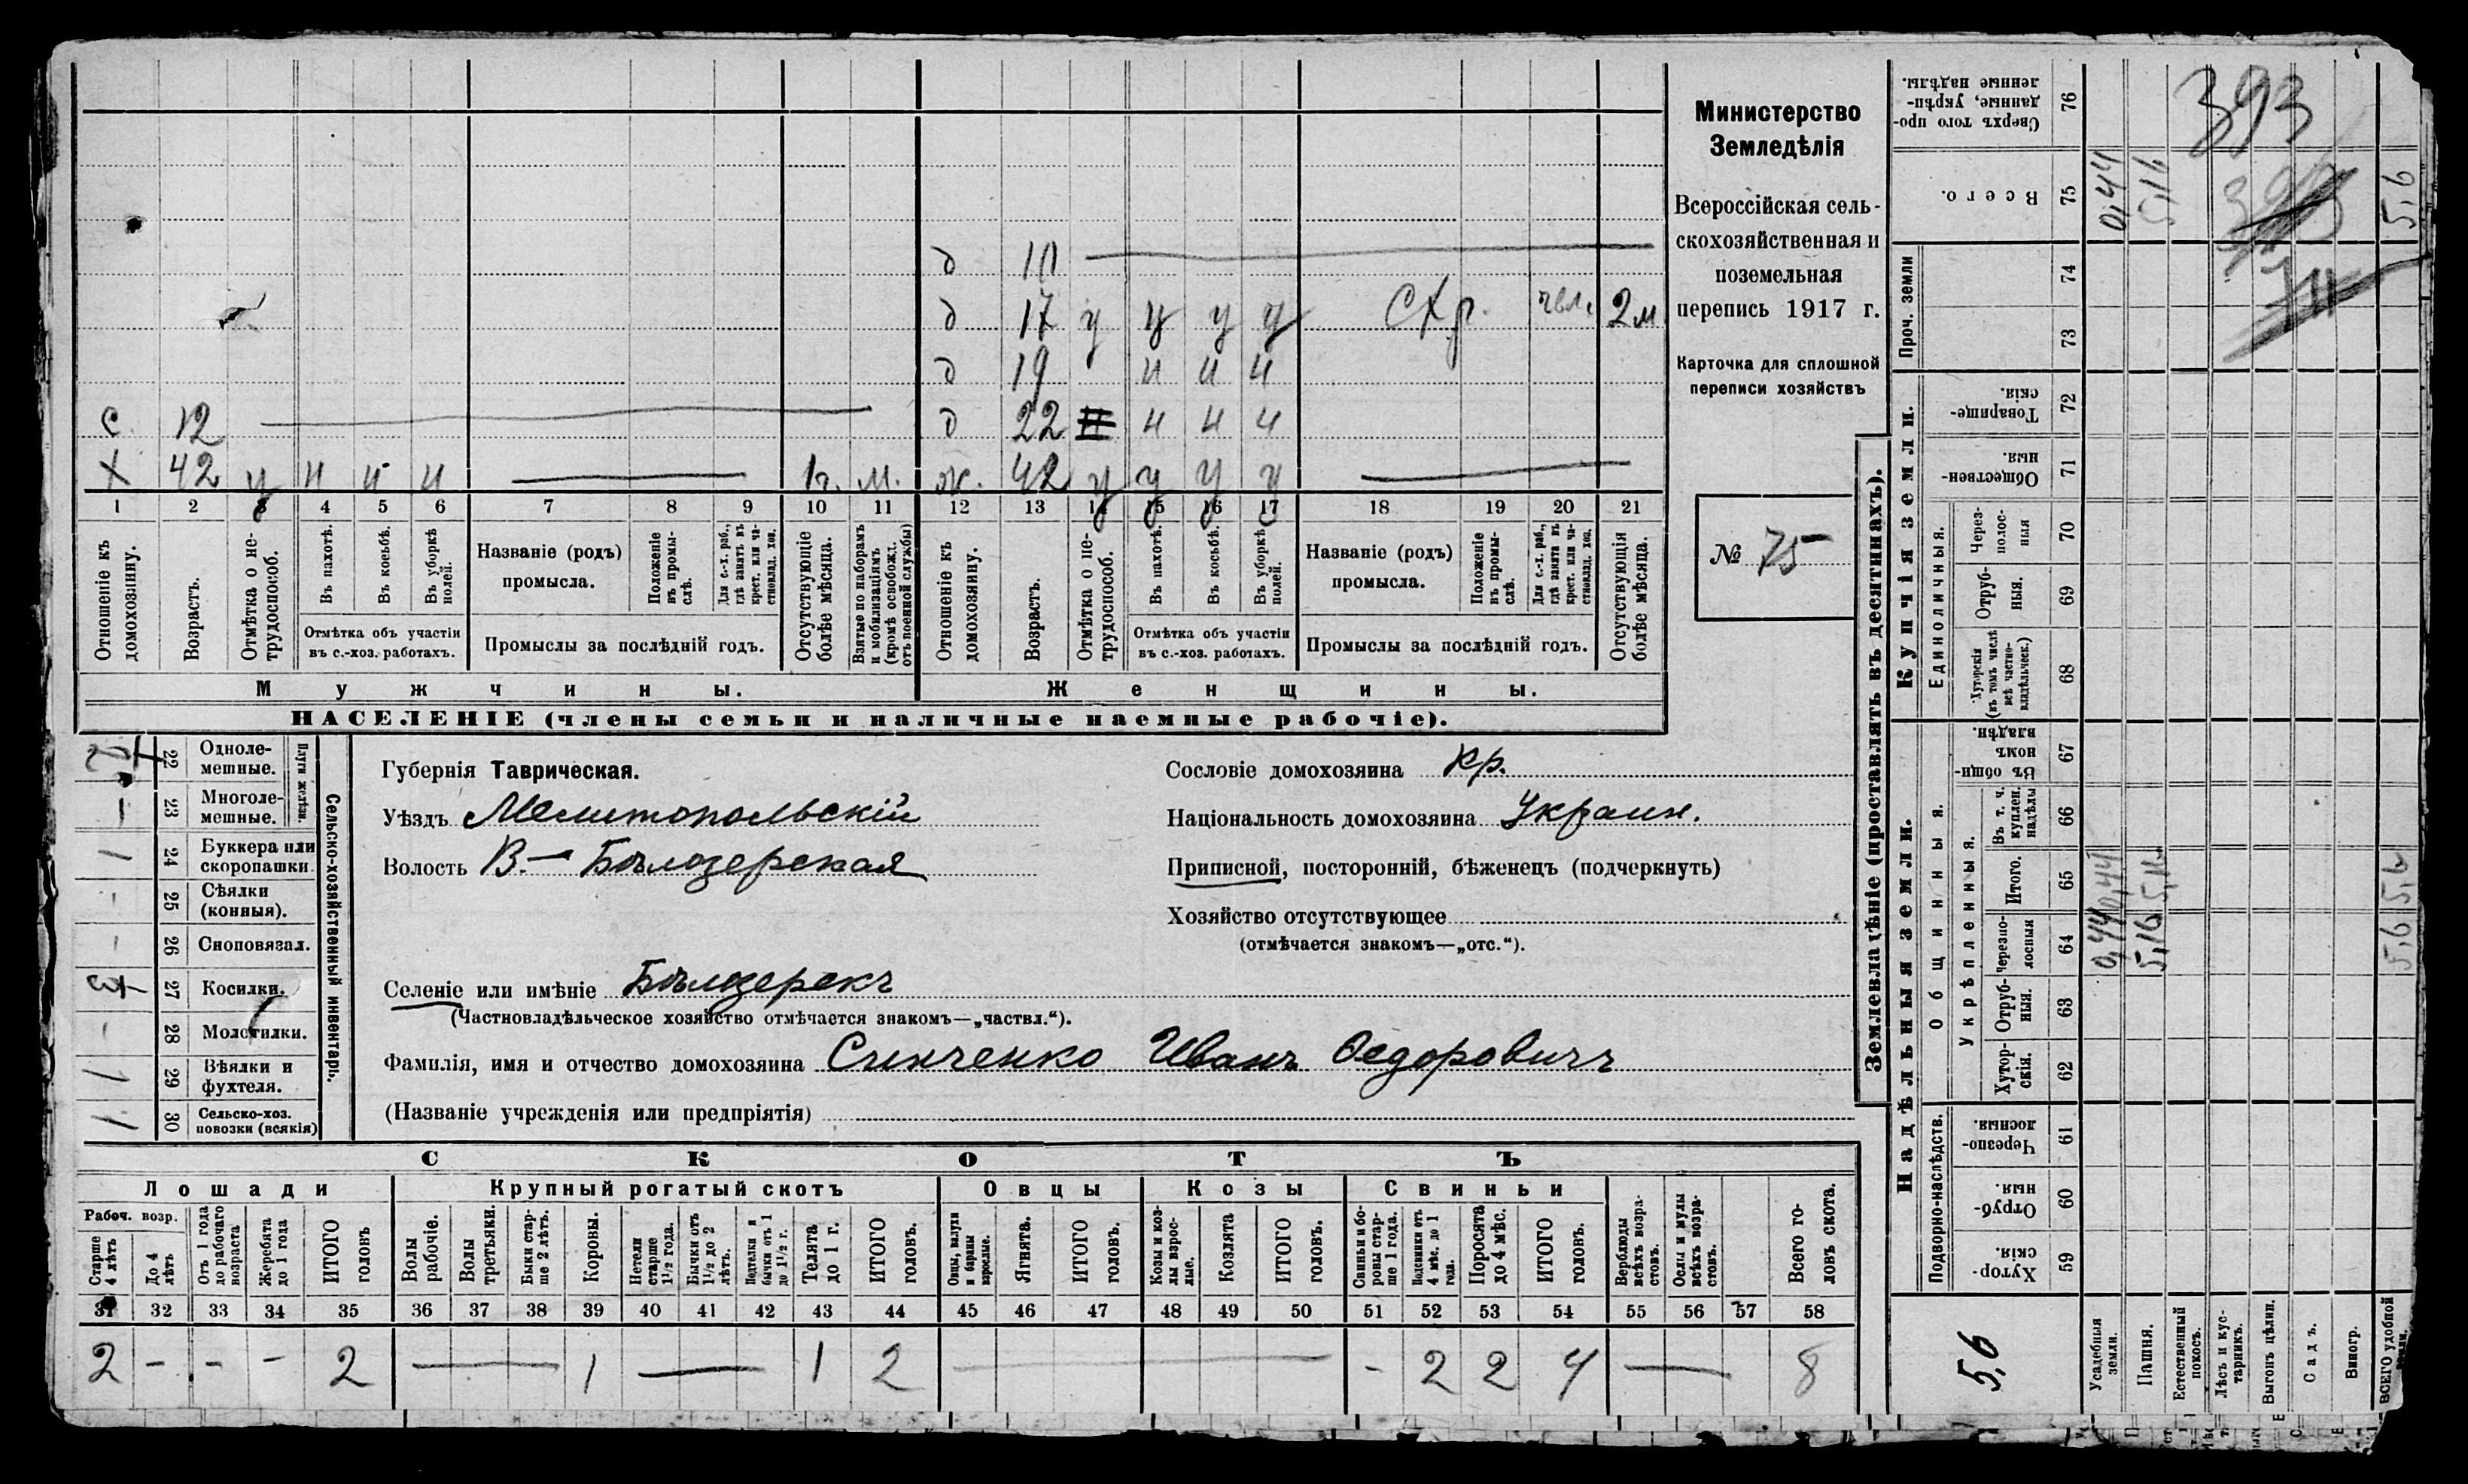 Министерство
Земледѣлія
Всероссійская сель-
скохозяйственная и
поземельная
перепись 1917 г.
Карточка для сплошной
переписи хозяйствъ
№ 75
д 10
д 17 у у у у СХр. чвл. 2м
д 19 и и и
с 12 д 22 и и и
х 42 у и и и 1г. м. ж. 42 у у у у
1 2 3 4 5 6 7 8 9 10 11 12 13 14 15 16 17 18 19 20 21
Отношеніе къ домохозяину.
Возрастъ.
Отмѣтка о не-трудоспособ.
Въ пахотѣ.
Въ косьбѣ.
Въ уборкѣ полей.
Отмѣтка объ участіи
въ с.-хоз. работахъ.
Названіе (родъ)
промысла.
Положеніе въ промы-слѣ.
Для с.-х. раб., гдѣ занятъ въ крест. или ча-стновлад. хоз.
Промыслы за послѣдній годъ.
Отсутствующіе болѣе мѣсяца.
Взятые по наборамъ и мобилизаціямъ (кромѣ освобожд. отъ военной службы)
Отношеніе къ домохозяину.
Возрастъ.
Отмѣтка о не-трудоспособ.
Въ пахотѣ.
Въ косьбѣ.
Въ уборкѣ полей.
Отмѣтка объ участіи
въ с.-хоз. работахъ.
Названіе (родъ)
промысла.
Положеніе въ промы-слѣ.
Для с.-х. раб., гдѣ занята въ крест. или ча-стновлад. хоз.
Промыслы за послѣдній годъ.
Отсутствующія болѣе мѣсяца.
Мужчины.
Женщины.
НАСЕЛЕНІЕ (члены семьи и наличные наемные рабочіе).
Сельско-хозяйственный инвентарь.
Плуги желѣзн.
22 Одноле-мешные.
— 23 Многоле-мешные.
1 24 Буккера или скоропашки.
- 25 Сѣялки (конныя).
- 26 Сноповязал.
27 Косилки.
- 28 Молотилки.
1 29 Вѣялки и фухтеля.
1 30 Сельско-хоз. повозки (всякія)
Губернія Таврическая.
Уѣздъ Мелитопольскій
Волость В.- Бѣлозерская
Сословіе домохозяина кр.
Національность домохозяина Украин.
Приписной, посторонній, бѣженецъ (подчеркнуть)
Хозяйство отсутствующее
(отмѣчается знакомъ—„отс.“).
Селеніе или имѣніе Бѣлозерскъ
(Частновладѣльческое хозяйство отмѣчается знакомъ—„частвл.“).
Фамилія, имя и отчество домохозяина Синченко Иванъ Ѳедоровичъ
(Названіе учрежденія или предпріятія)
СКОТЪ
Лошади Крупный рогатый скотъ Овцы Козы Свиньи
Рабоч. возр.
Старше 4 лѣтъ
До 4 лѣтъ
Отъ 1 года до рабочаго возраста
Жеребята до 1 года
ИТОГО головъ
Волы рабочіе.
Волы третьяки.
Быки стар-ше 2 лѣтъ.
Коровы.
Нетели старше 1½ года.
Бычки отъ 1½ до 2 лѣтъ.
Подтелки и бычки отъ 1 до 1½ г.
Телята до 1 г.
ИТОГО головъ.
Овцы, валухи и бараны взрослые.
Ягнята.
ИТОГО головъ.
Козы и коз-лы взрос-лые.
Козлята
ИТОГО головъ.
Свиньи и бо-ровы стар-ше 1 года.
Подсвинки отъ 4 мѣс. до 1 года.
Поросята до 4 мѣс.
ИТОГО головъ.
Верблюды всѣхъ возра-стовъ.
Ослы и мулы всѣхъ возра-стовъ.
Всего го-ловъ скота.
31 32 33 34 35 36 37 38 39 40 41 42 43 44 45 46 47 48 49 50 51 52 53 54 55 56 57 58
2 - - - 2 — 1 — 1 2 — - 2 2 4 — 8
Землевладѣніе (проставлять въ десятинахъ).
Надѣльныя земли.
Купчія земли.
Проч. земли
Подворно-наслѣдств.
Общинныя.
Укрѣпленныя.
Единоличныя.
Хутор-скія. 59
Отруб-ныя. 60
Черезпо-лосныя. 61
Хутор-скія. 62
Отруб-ныя. 63
Черезпо-лосныя 64
Итого. 65
Въ т. ч. куплен. надѣлы 66
Въ общи-номъ владѣн. 67
Хуторскія (въ томъ числѣ всѣ частно-владѣльческ.) 68
Отруб-ныя. 69
Через-полос-ныя 70
Обществен-ныя. 71
Товарище-скія. 72
73
74
Всего. 75
Сверхъ того про-данные, укрѣп-ленные надѣлы. 76
5,6
Усадебныя земли. 0,44 0,44 0,44
Пашня. 5,16 5,16 5,16
Естественный покосъ.
Лѣсъ и кус-тарникъ.
Выгонъ цѣлин.
Садъ.
Виногр.
ВСЕГО удобной земли. 5,6 5,6 5,6
393